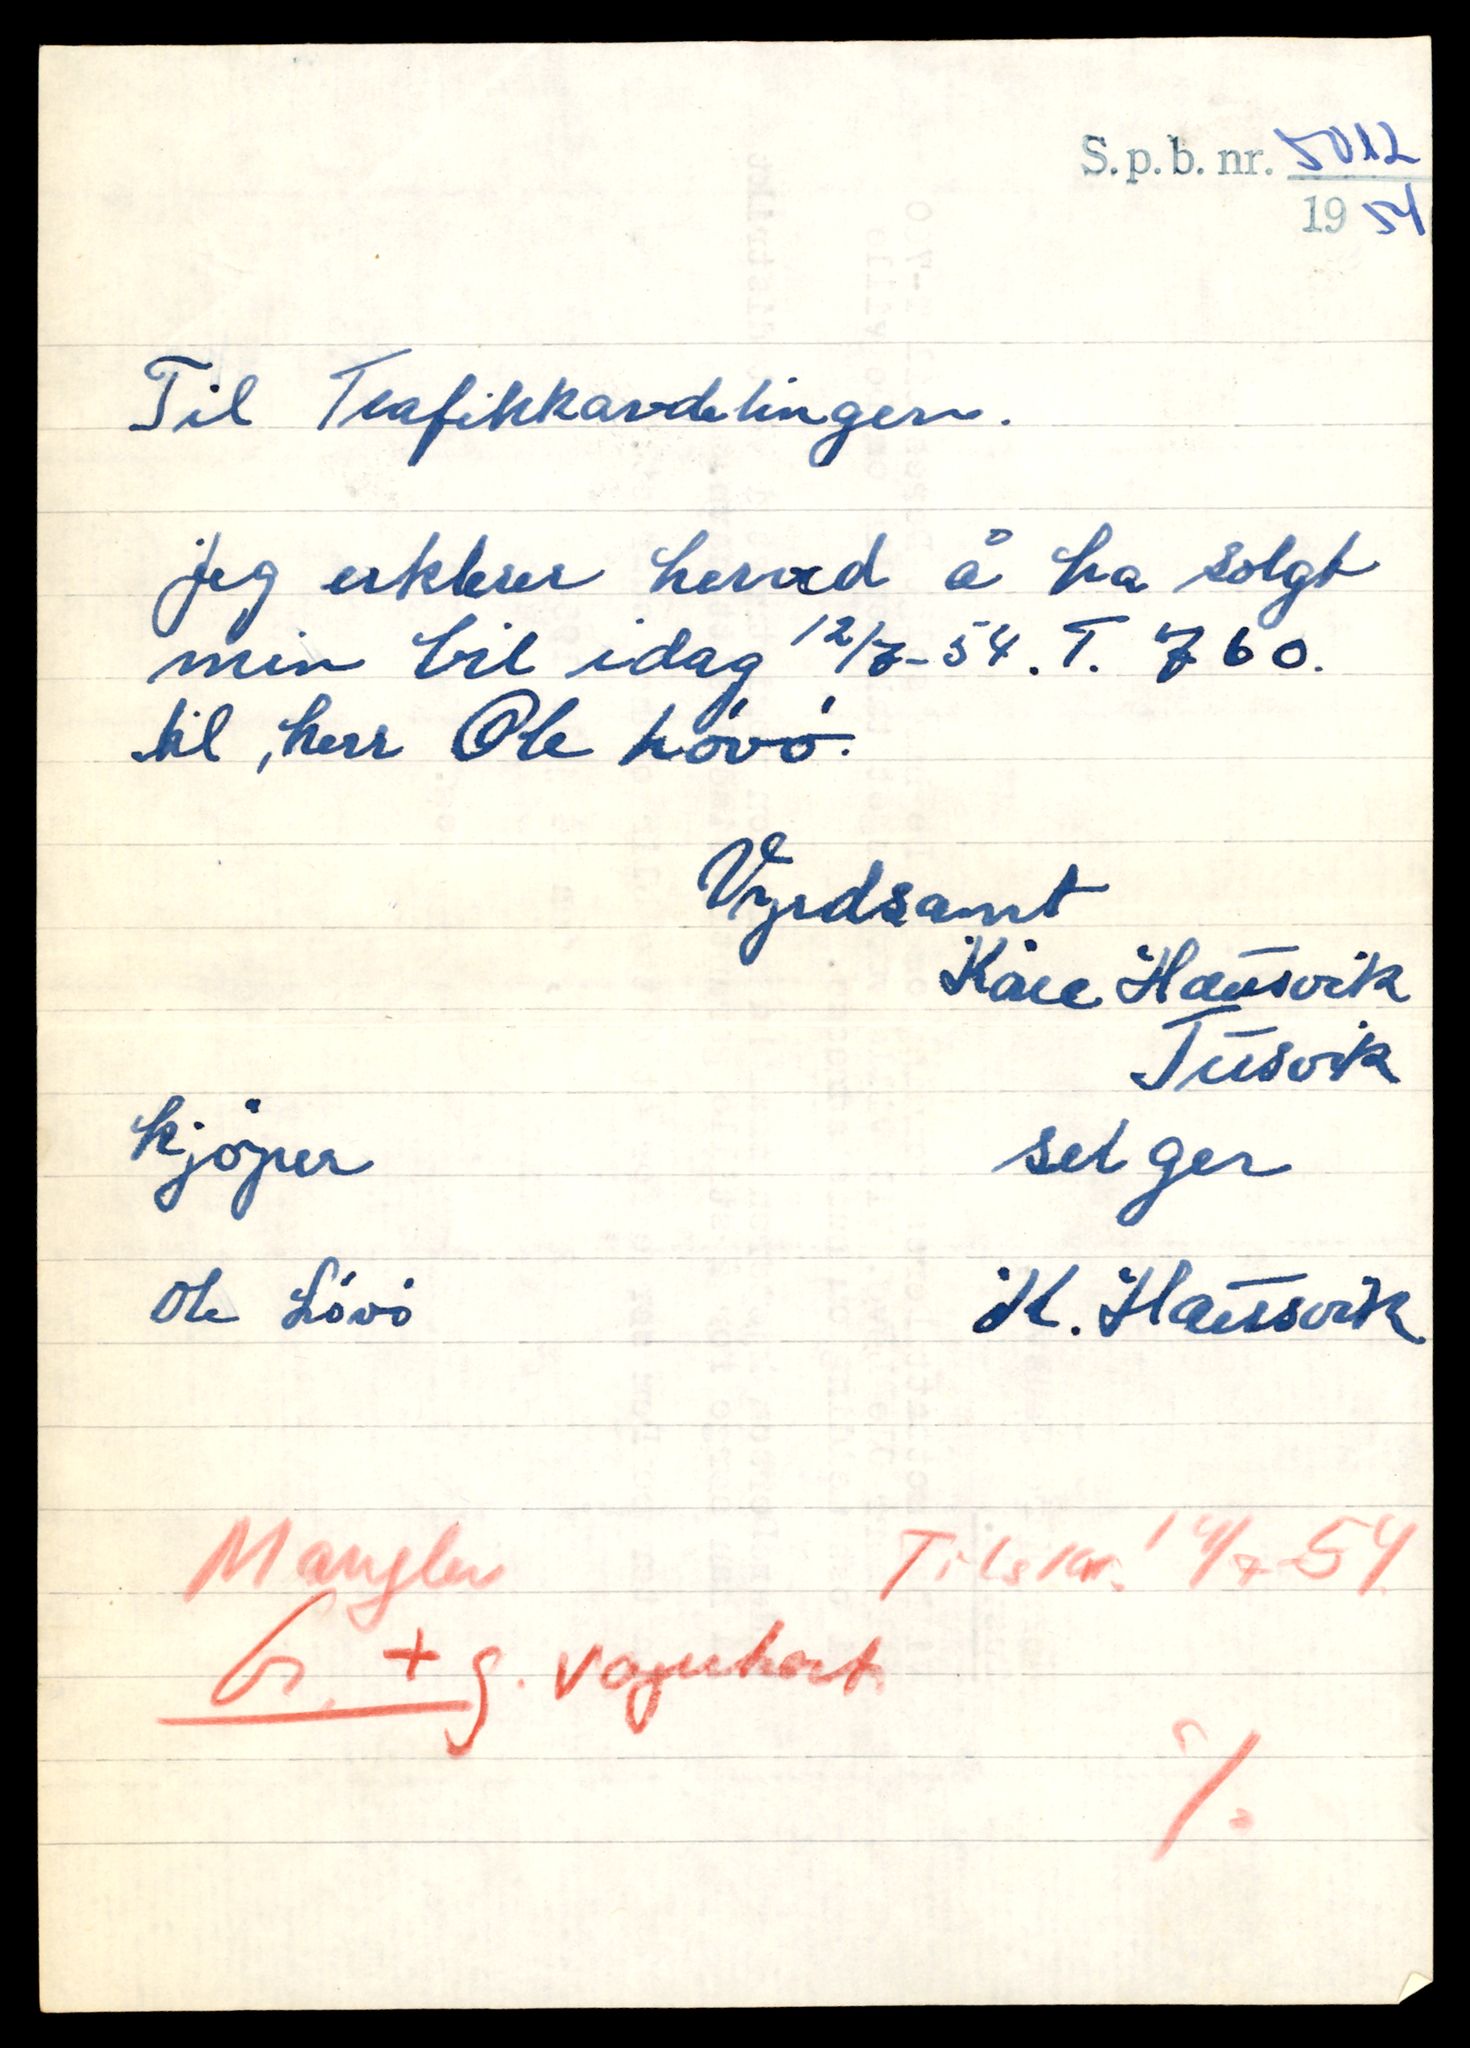 S.p.b. nr. 5012
19 54
Til Trafikkavdelingen.
jeg erklerer herved å ha solgt
min bil idag 12/7-54. T. 760.
til, herr Ole Lóvó.
Vyrdsamt
Kåre Haŭsvik
Tŭsvik
kjöper
selger
Ole Lóvó
K. Haŭsvik
Mangler
Tilskr. 14/7-54.
+ g. vognkort